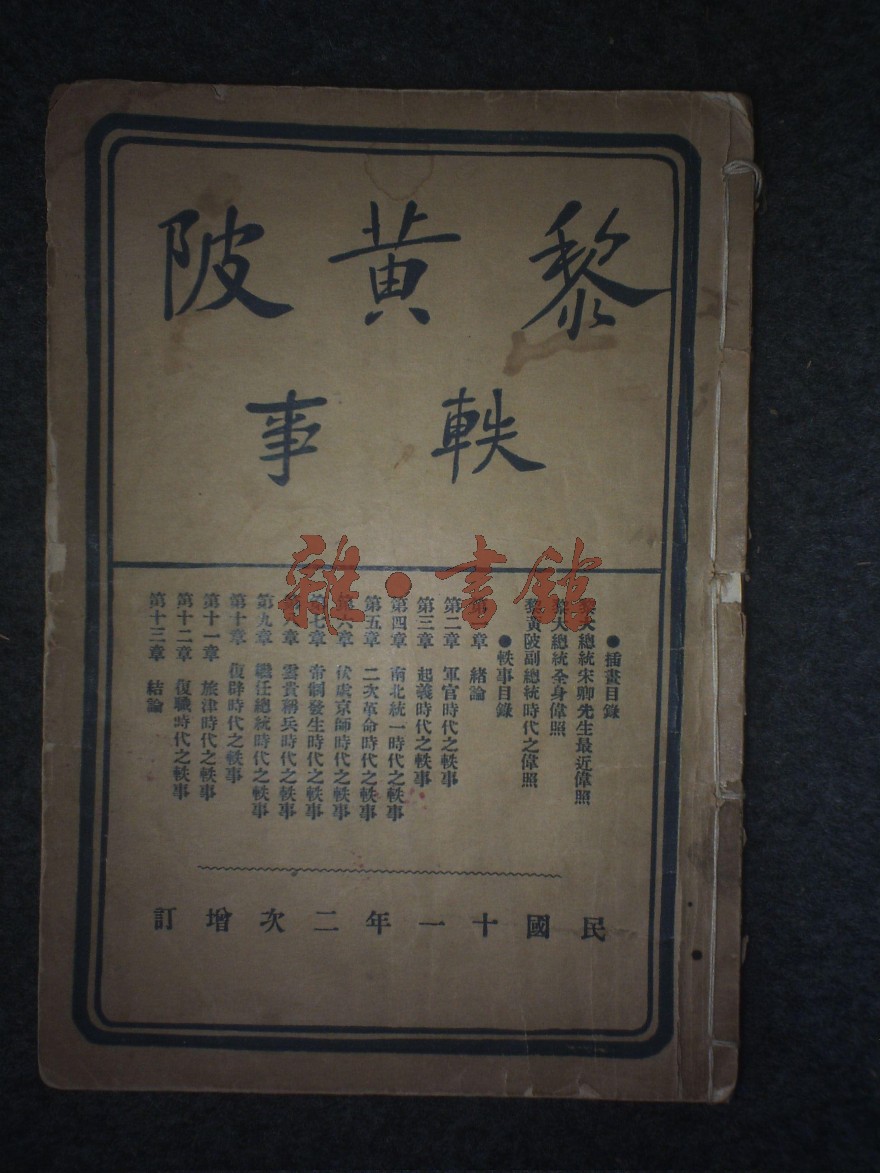 黎黃陂
軼事
●插畫目錄
黎大總統宋卿先生最近偉照
黎大總統全身偉照
黎黃陂副總統時代之偉照
●軼事目錄
第一章 緒論
第二章 軍官時代之軼事
第三章 起義時代之軼事
第四章 南北統一時代之軼事
第五章 二次革命時代之軼事
第六章 伏處京師時代之軼事
第七章 帝制發生時代之軼事
第八章 雲貴稱兵時代之軼事
第九章 繼任總統時代之軼事
第十章 復辟時代之軼事
第十一章 旅津時代之軼事
第十二章 復職時代之軼事
第十三章 結論
民國十一年二次增訂
雜·書館